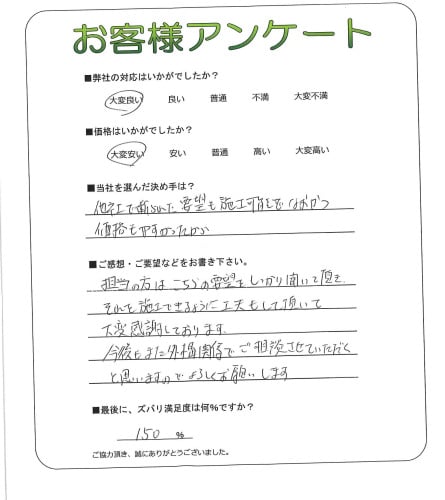 お客様アンケート
■弊社の対応はいかがでしたか？
大変良い 良い 普通 不満 大変不満
■価格はいかがでしたか？
大変安い 安い 普通 高い 大変高い
■当社を選んだ決め手は？
他社で断られた要望も施工可能でなおかつ
価格もやすかったから
■ご感想・ご要望などをお書き下さい。
担当の方はこちらの要望をしっかり聞いて頂き、
それを施工できるように工夫もして頂いて
大変感謝しております。
今後もまた外構関係でご相談させていただく
と思いますのでよろしくお願いします
■最後に、ズバリ満足度は何%ですか？
150 %
ご協力頂き、誠にありがとうございました。